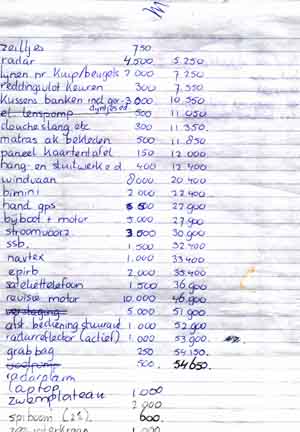 zeiltjes 750
radar 4.500 5.250
lynen nr. Kuip/beugels 2000 7.250
reddingsvlot keuren 300 7.550
Kussens banken incl gor- 3.000 10.550
dyntjes ed
el. lenspomp 500 11.050
doucheslang etc 300 11.350.
matras ak bekleden 500 11.850
paneel kaartentafel 150 12.000
hang en sluitwerk e.d 400 12.400
windvaan 8000 20.400
bimini 2 000 22.400
hand gps 500 22.900
bijboot + motor 5.000 27.900
stroomvoorz. 3000 30.900
ssb. 1.500 32.400
navtex 1.000 33400
epirb 2.000 35.400
satelliettelefoon 1500 36.900
revisie motor 10.000 46.900
verstaging 5.000 51.900
afst. bediening stuuraut 1.000 52.900
radarreflector (actief) 1.000 53.900
grab bag 250 54.150.
500. 54650.
radarplarm
laptop 1.000
zwemplateau 2.000
spiboom (2x) 600.
1.000